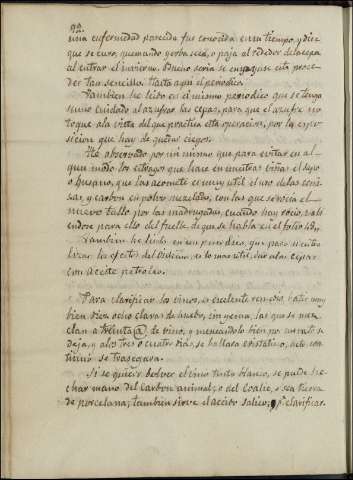 92.
una enfermedad parecida fue conocida en su tiempo, y dice
que se curo quemando yerba seca, o paja al rededor de la cepa
al entrar el invierno. Mucho seria se enjugase esta proce-
der tan sencillo. Hasta aqui el periodico.
Tambien he leido en el mismo periodico que se tenga
sumo cuidado al azufrar las cepas, para que el azufre no
toque a la vista del que practica esta operacion, por la espo-
sicion que hay de quedar ciegos.
He observado por mi mismo que para evitar en al-
gun modo los estragos que hace en nuestras viñas el sapo
o gusano, que las acomete es muy util el uso de las ceni-
zas, y carbon en polvo mezclados, con las que se rocia el
nuevo tallo por las madrugadas, cuando hay rocio, vali-
endose para ello del fuelle de que se habla en el folio 89,,
Tambien he leido en un periodico, que para neutra-
lizar los efectos del Oidium, es lo mas util, untar las cepas
con aceite petroleo.
Para clarificar los vinos, es excelente remedio, batir muy
bien diez u ocho claras de huevo, sin yema, las que se mez-
clan a treinta @ de vino, y meneandolo bien por un rato se
deja, y a los tres o cuatro dias, se hallará cristalino, acto con-
tinuo se trasegara.
Si se quiere volver el vino tinto blanco, se puede he-
char mano del Carbon animal, o del Coalin, o sea tierra
de porcelana; tambien sirve el acido salico, pª clarificar.